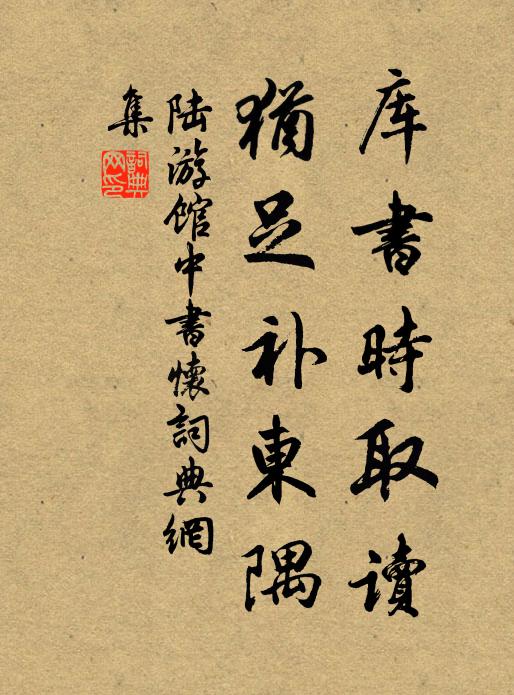 库書時取读
猶足补東隅
陆游馆中書懷詞典網
集
詞典網印